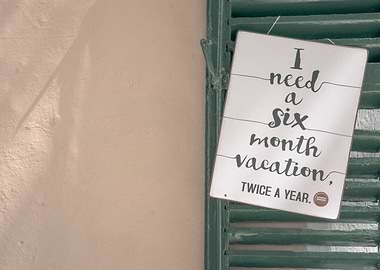 I
need
a
six
month
vacation,
TWICE A YEAR.